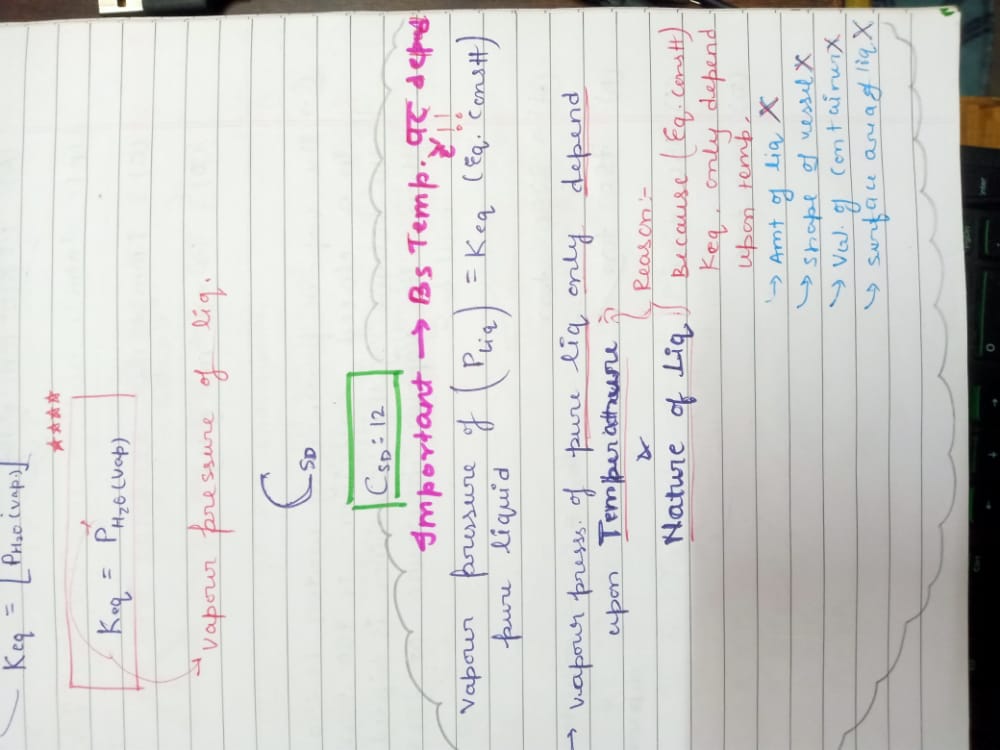 Keq = [PH₂O(vap.)]
★★★★
Keq = PH₂O(vap)
→ vapour pressure of liq.
CSD
CSD:12
Important → Bs Temp. पर depend
!!
Vapour pressure of (PLiq) = Keq (Eq. constt)
pure liquid
→ vapour press. of pure liq only depend
upon Temperature
&
Nature of Liq
Reason:-
Because (Eq. constt)
Keq. only depend
upon temp.
→ Amt of liq X
→ shape of vessel X
→ Vol. of container X
→ surface area of liq X